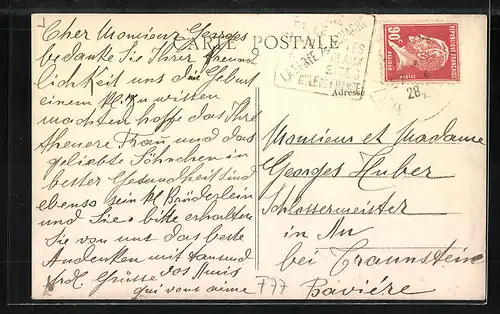 CARTE POSTALE
Cher Monsieur Georges
bedanke Sie Ihrer freund
lichkeit uns die Geburt
einem kl. zu wissen
machten hoffe das Ihre
theuere Frau und das
geliebte Söhnchen in
bester Gesundheit sind
ebenso sein kl. Brüderlein
und Sie. bitte erhalten
Sie von uns das beste
Andenken mit tausend
Grüsse Vos Amis
qui vous aime
777
Adresse
Monsieur et Madame
Georges Huber
Schlossermeister
in Au
bei Traunstein
Bavière
LA FERTE
S/LETE-FRANCE
28
REPUBLIQUE FRANÇAISE
90c
POSTES
PASTEUR